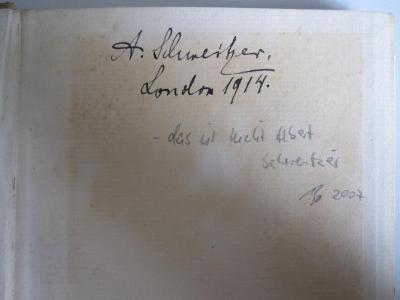 A. Schweitzer,
London 1914.
- das ist nicht Albert
Schweitzer
2007